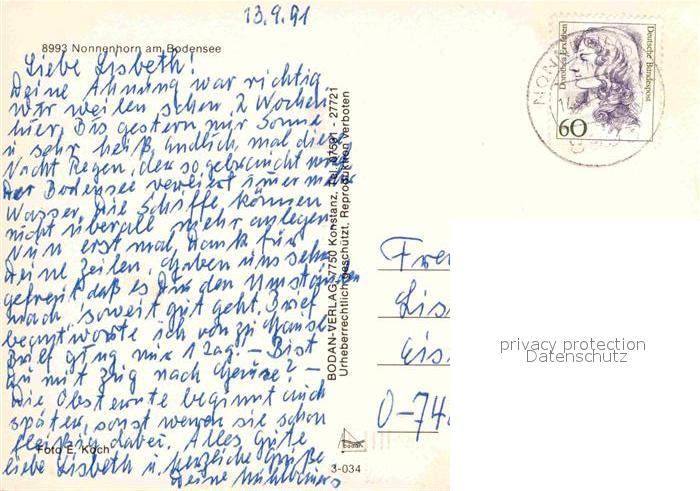 13.9.91
8993 Nonnenhorn am Bodensee
Liebe Lisbeth!
Deine Ahnung war richtig,
wir weilen schon 2 Wochen
hier. Bis gestern nur Sonne
u sehr heiß, endlich mal diese
Nacht Regen, der so gebraucht wird.
Der Bodensee verliert immer mehr
Wasser, die Schiffe können
nicht überall mehr anlegen.
Nun erst mal Dank für
Deine Zeilen, haben uns sehr
gefreut daß es Dir den Umständen
nach soweit gut geht. Brief
beantworte ich von zu Hause
Brief ging nur 1 Tag. – Bist
Du mit Zug nach
Die Obsternte beginnt auch
später, sonst waren sie schon
fleißig dabei. Alles Gute
liebe Lisbeth u. herzliche Grüße
Deine
Foto E. Koch
BODAN-VERLAG, 7750 Konstanz, Tel. 07531 - 27721
Urheberrechtlich geschützt, Reproduktion verboten
bodan
3-034
Dorothea Erxleben
Deutsche Bundespost
60
NON
14
Lis
Eis
O-74
privacy protection
Datenschutz